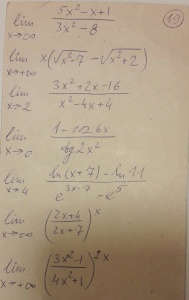 (19)
lim x→∞ (5x²-x+1)/(3x²-8)
lim x→+∞ x(√(x²-7) - √(x²+2))
lim x→2 (3x²+2x-16)/(x²-4x+4)
lim x→0 (1-cos6x)/(tg2x²)
lim x→4 (ln(x+7)-ln11)/(e^(3x-7)-e⁵)
lim x→∞ ((2x+4)/(2x+7))^x
lim x→+∞ ((3x²-1)/(4x²+1))^(2x)